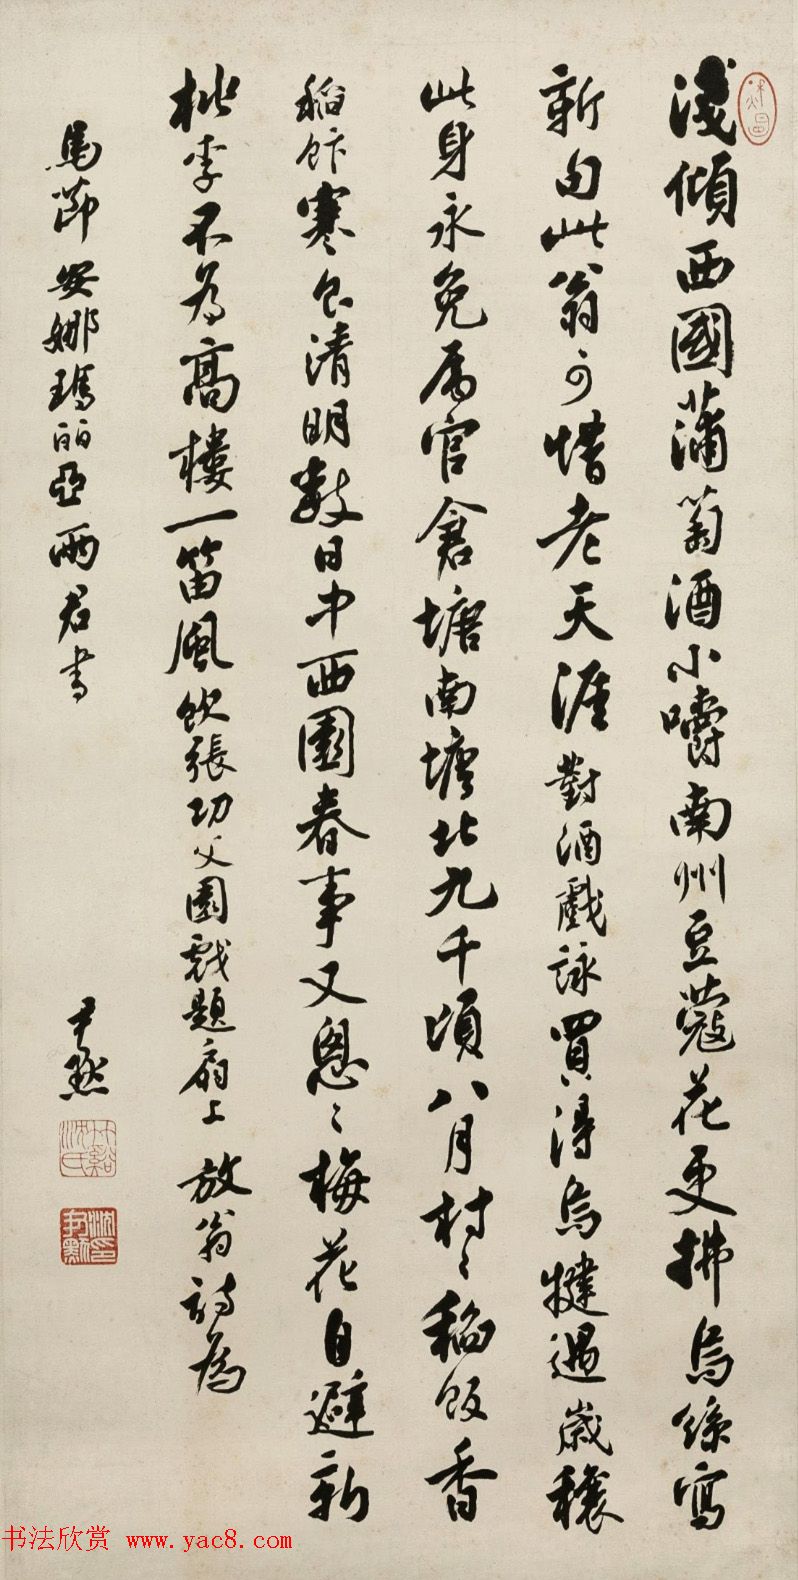 淺傾西國蒲萄酒小嚼南州豆蔻花更拂烏絲寫
新句此翁可惜老天涯對酒戲詠買得烏犍遇歲穰
此身永免属官倉塘南塘北九千頃八月村〻稻飯香
稻飰寒食清明數日中西園春事又悤〻梅花自避新
桃李不為髙樓一笛風飲張功父園戲題扇上放翁詩為
馬節安娜瑪丽亞兩君書
尹默
竹谿沈氏
沈尹默印
书法欣赏 www.yac8.com